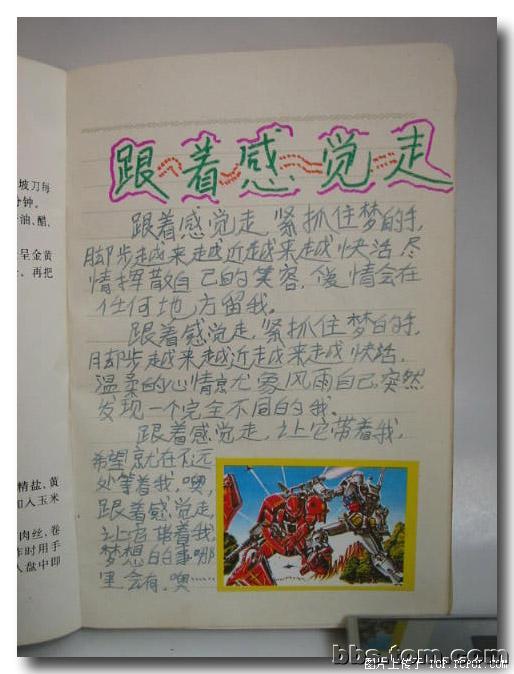 坡刀每
分钟。
油、醋、
呈金黄
、再把
精盐、黄
加入玉米
肉丝，卷
炸时用手
入盘中即
跟着感觉走
跟着感觉走,紧抓住梦的手,
脚步越来越近越来越快活,尽
情挥散自己的笑容,傻情会在
任何地方留我。
跟着感觉走,紧抓住梦的手,
脚步越来越近越来越快活,
温柔的心情京尤象风雨自己,突然
发现一个完全不同的我。
跟着感觉走,让它带着我,
希望就在不远
处等着我,噢,
跟着感觉走,
让它带着我,
梦想的的事哪
里会有,噢
bbs.tom.com
图片上传于